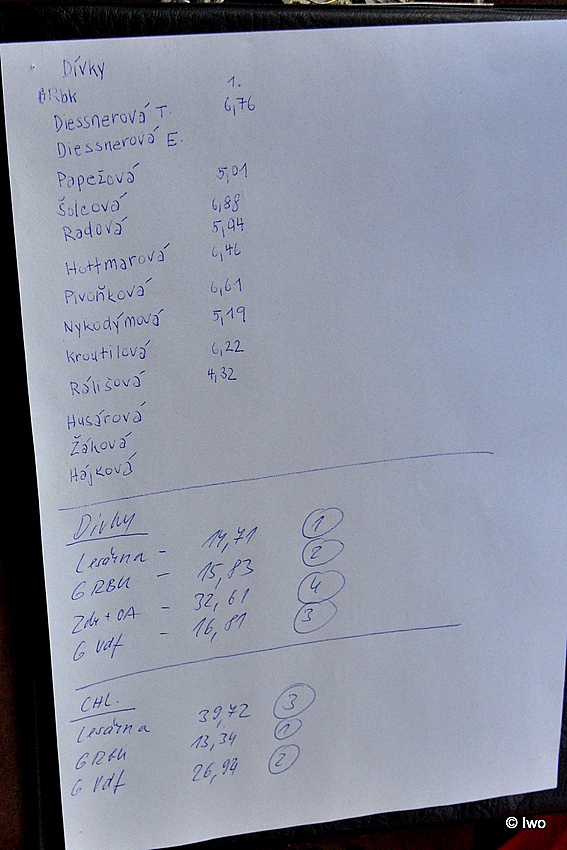 Dívky
GRbk 1.
Diessnerová T. 6,76
Diessnerová E.
Papežová 5,01
Šolcová 6,88
Radová 5,94
Hottmarová 6,46
Pivoňková 6,61
Nykodýmová 5,19
Kroutilová 6,22
Rálišová 4,32
Husárová
Žáková
Hájková
Dívky
Lesárna - 14,71 1
GRBK - 15,83 2
Zdr + OA - 32,61 4
G Vdf - 16,81 3
CHL.
Lesárna 39,72 3
GRBK 13,34 1
G Vdf 26,94 2
© Iwo